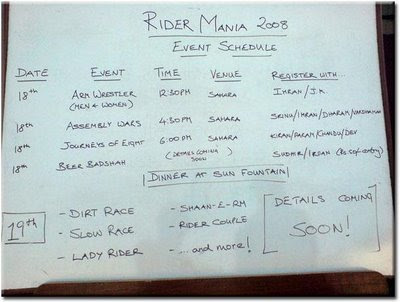 RIDER MANIA 2008
EVENT SCHEDULE
DATE EVENT TIME VENUE REGISTER WITH...
18th ARM WRESTLER 12:30PM SAHARA IMRAN/J.M.
(MEN & WOMEN)
18th ASSEMBLY WARS 4:30PM SAHARA SRINU/IMRAN/DHARAM/VARDHAMAN
18th JOURNEYS OF EIGHT 6:00PM SAHARA KIRAN/PARAM/CHANDU/DEV
18th BEER BADSHAH (DETAILS COMING SOON) SUDHIR/IRFAN
DINNER AT SUN FOUNTAIN
19th
- DIRT RACE - SHAAN-E-RM
- SLOW RACE - RIDER COUPLE
- LADY RIDER - ...and more!
DETAILS COMING
SOON!